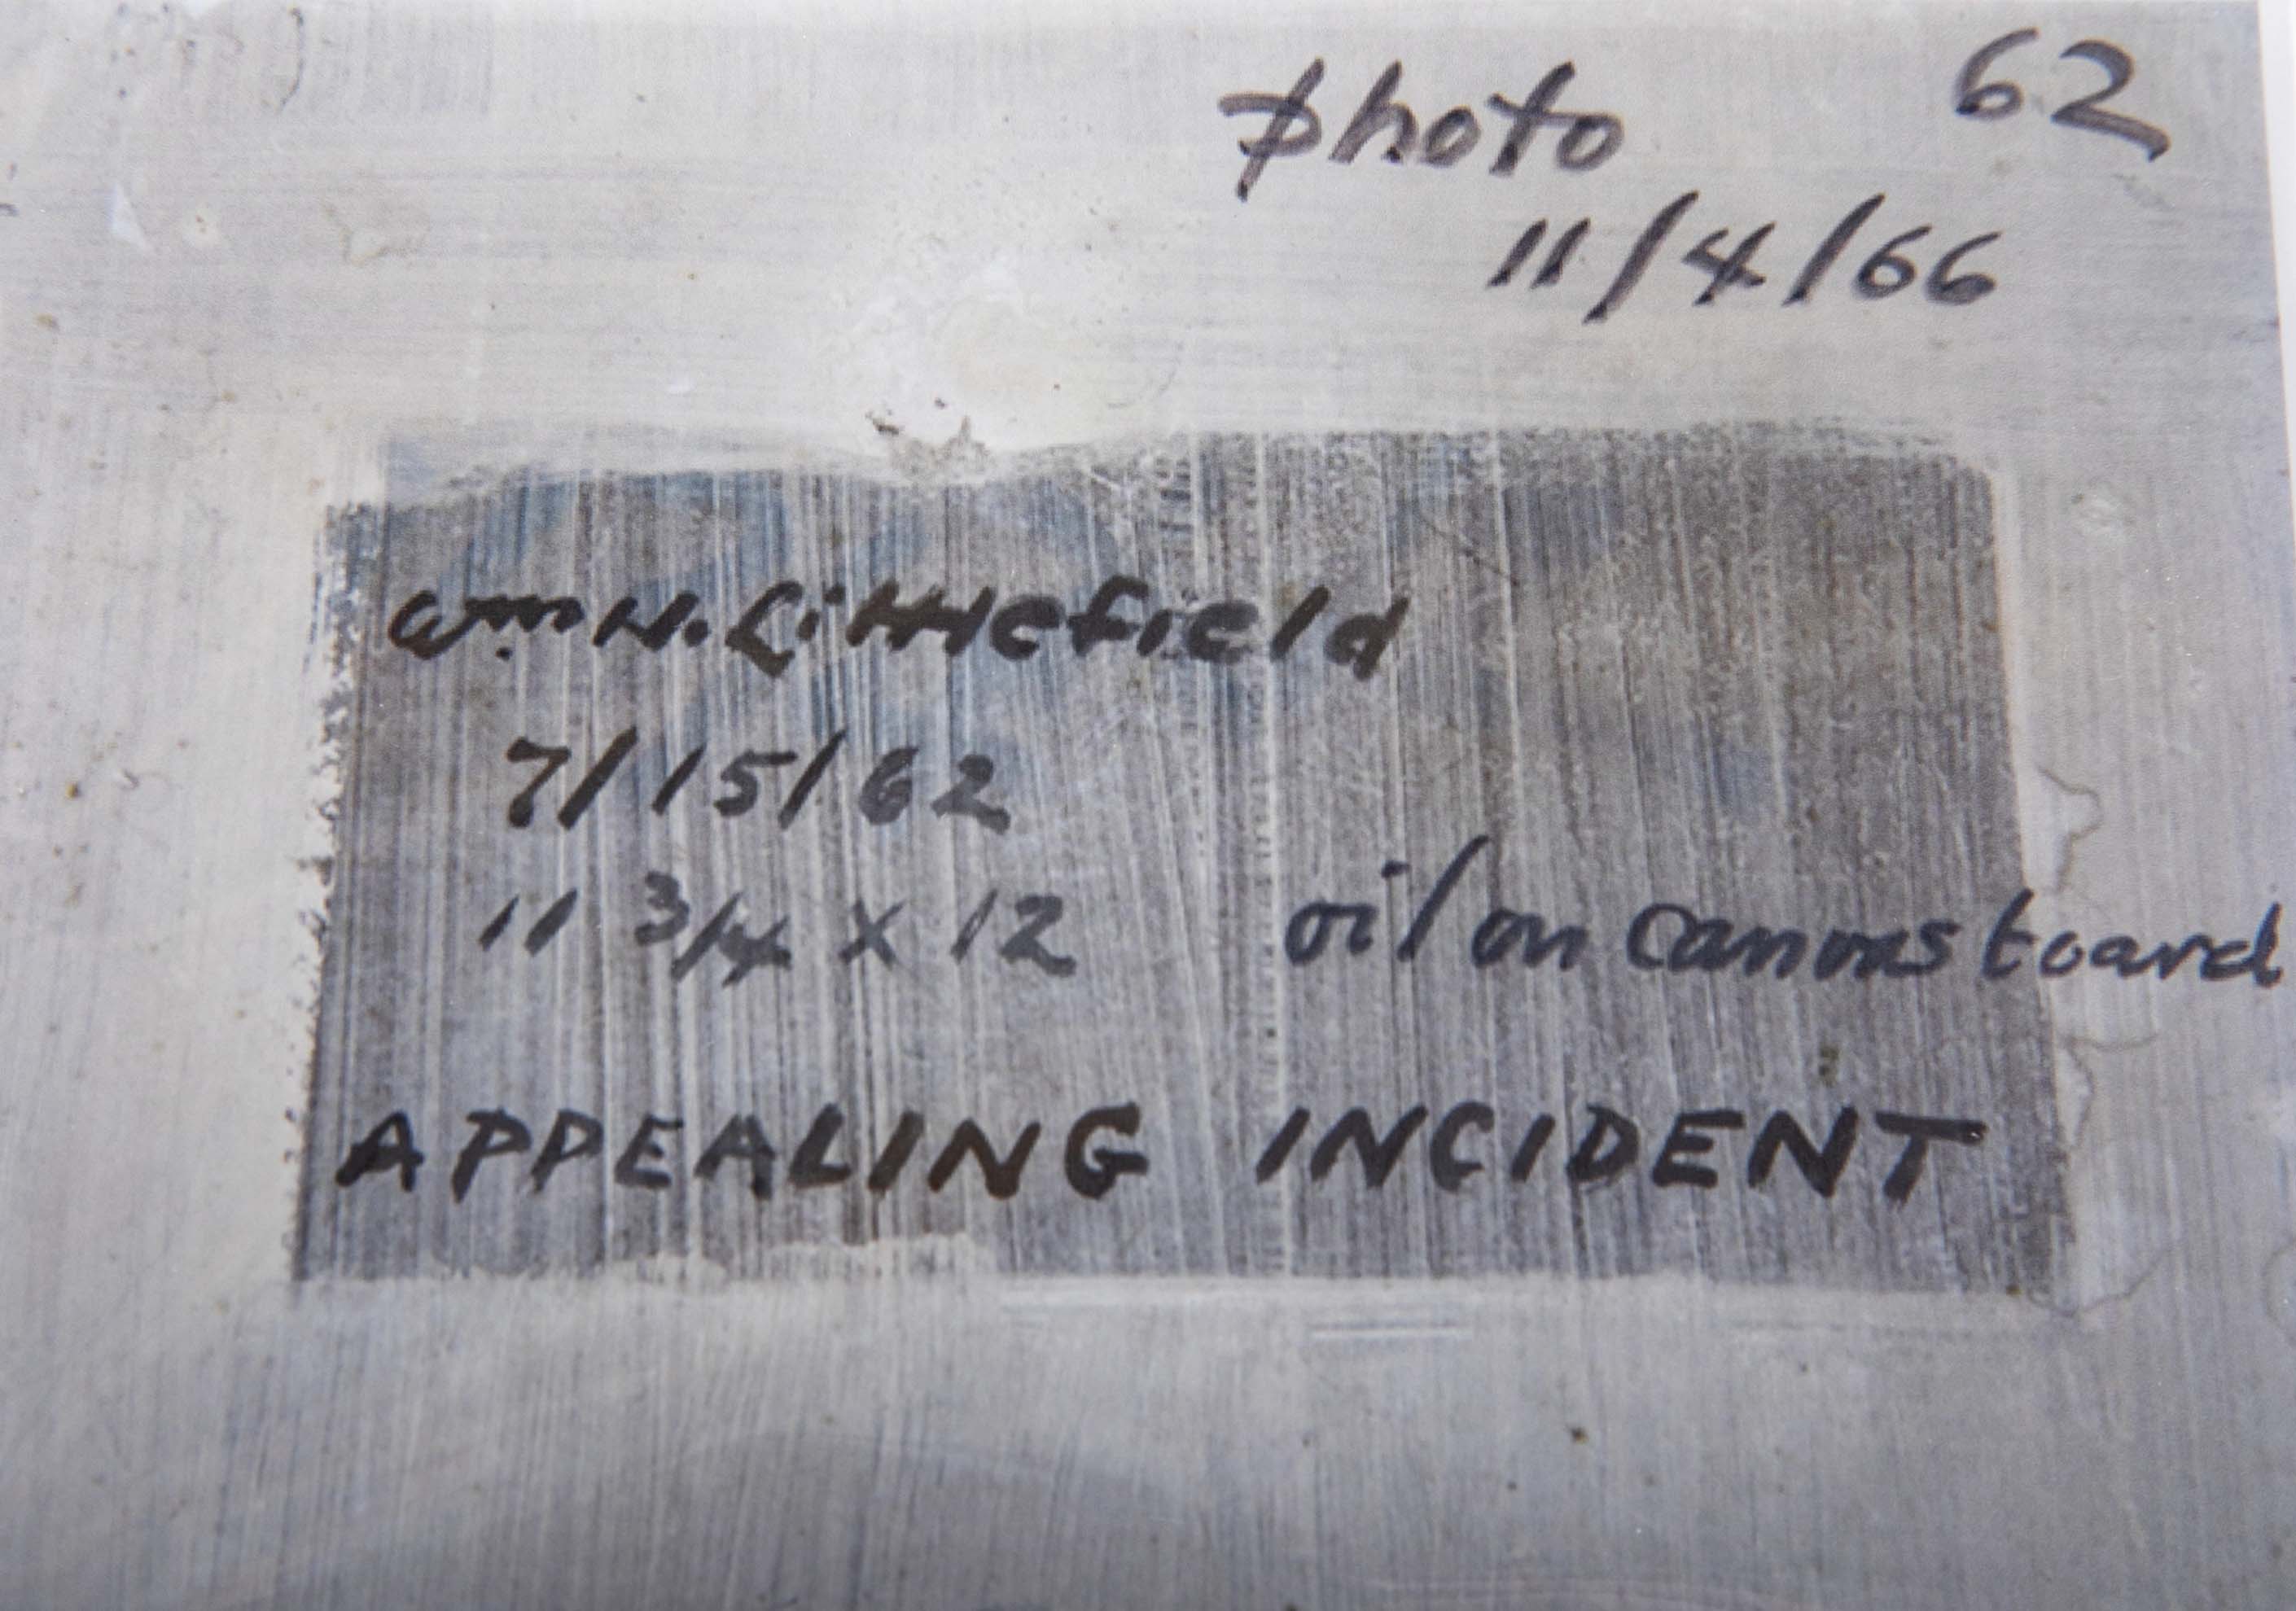 photo 62
11/4/66
Wm H. Littlefield
7/15/62
11 3/4 x 12 oil on canvas board
APPEALING INCIDENT